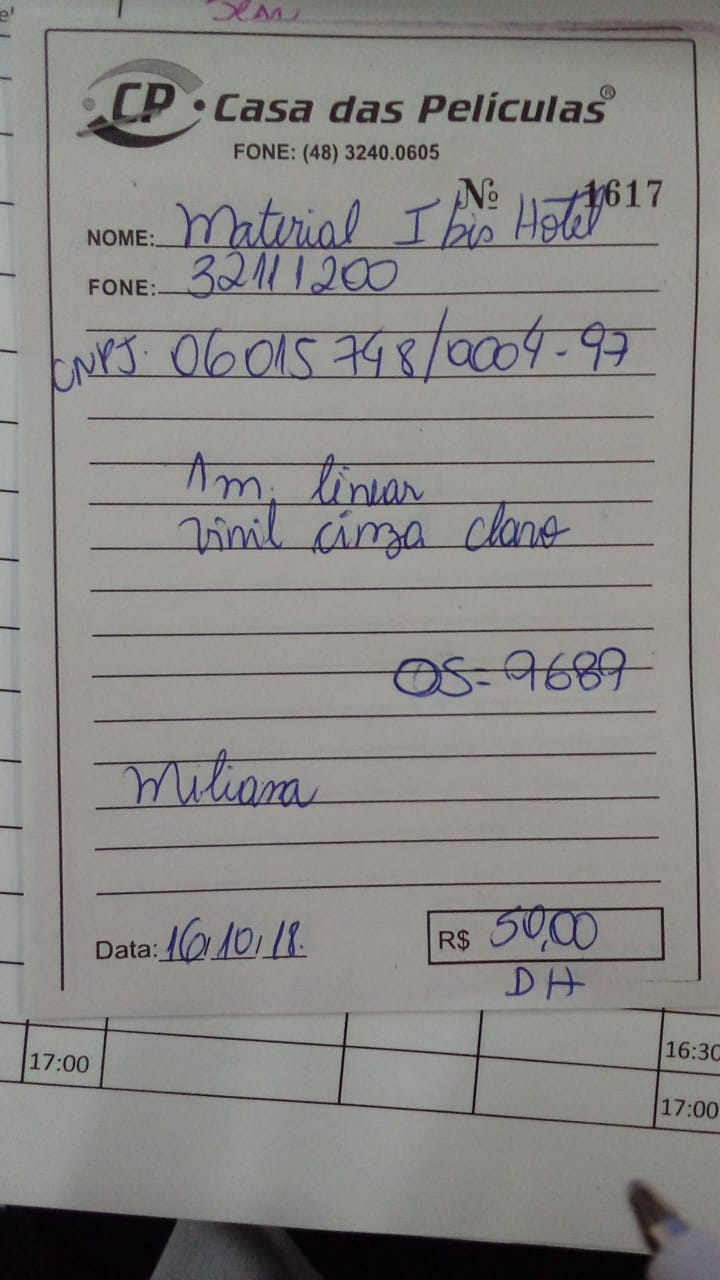 CP • Casa das Películas®
FONE: (48) 3240.0605
Nº 1617
NOME: Material Ibis Hotel
FONE: 32111200
CNPJ. 06015748/0004-97
1 m. linear
Vinil cinza claro
OS= 9689
Miliana
Data: 16/10/18.
R$ 50,00
DH
17:00
16:30
17:00